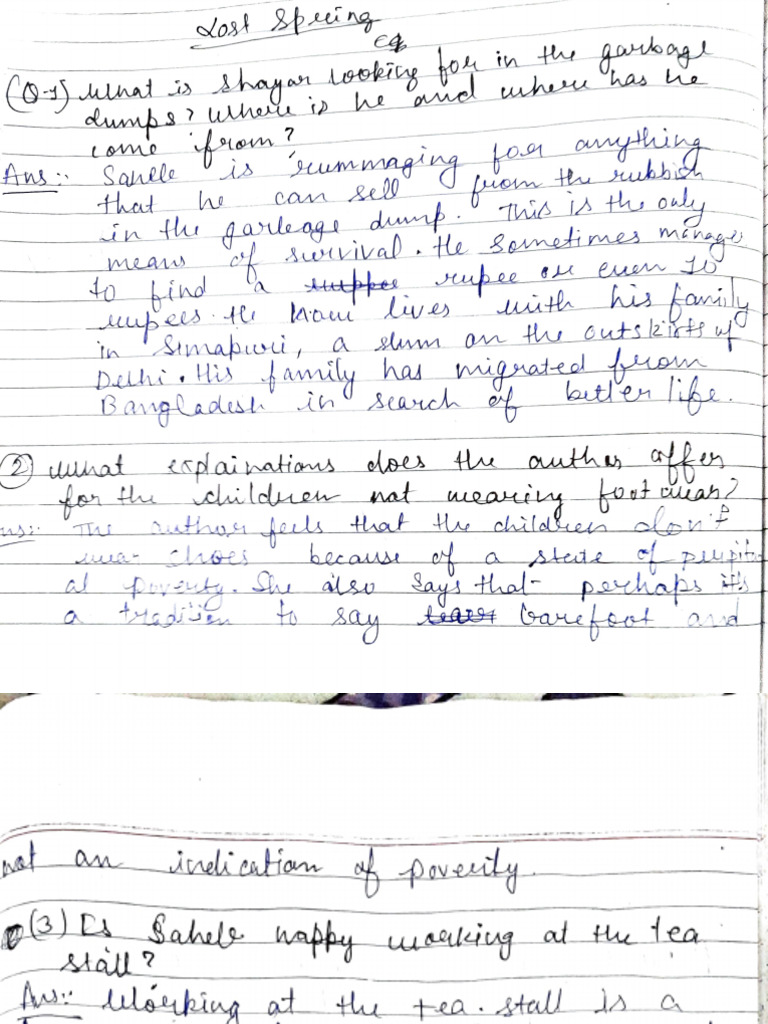 Lost Spring
(Q-1) What is Shayar looking for in the garbage
dumps? Where is he and where has he
come from?
Ans:- Saheb is rummaging for anything
that he can sell from the rubbish
in the garbage dump. This is the only
means of survival. He sometimes manages
to find a rupee or even 10
rupees. He now lives with his family
in Simapuri, a slum on the outskirts of
Delhi. His family has migrated from
Bangladesh in search of better life.
(2) What explainations does the author offer
for the children not wearing footwear?
Ans:- The author feels that the children don't
wear shoes because of a state of
al poverty. She also says that perhaps it's
a tradition to say barefoot and
not an indication of poverity.
(3) Is Saheb happy working at the tea
stall?
Ans:- Working at the tea-stall is a